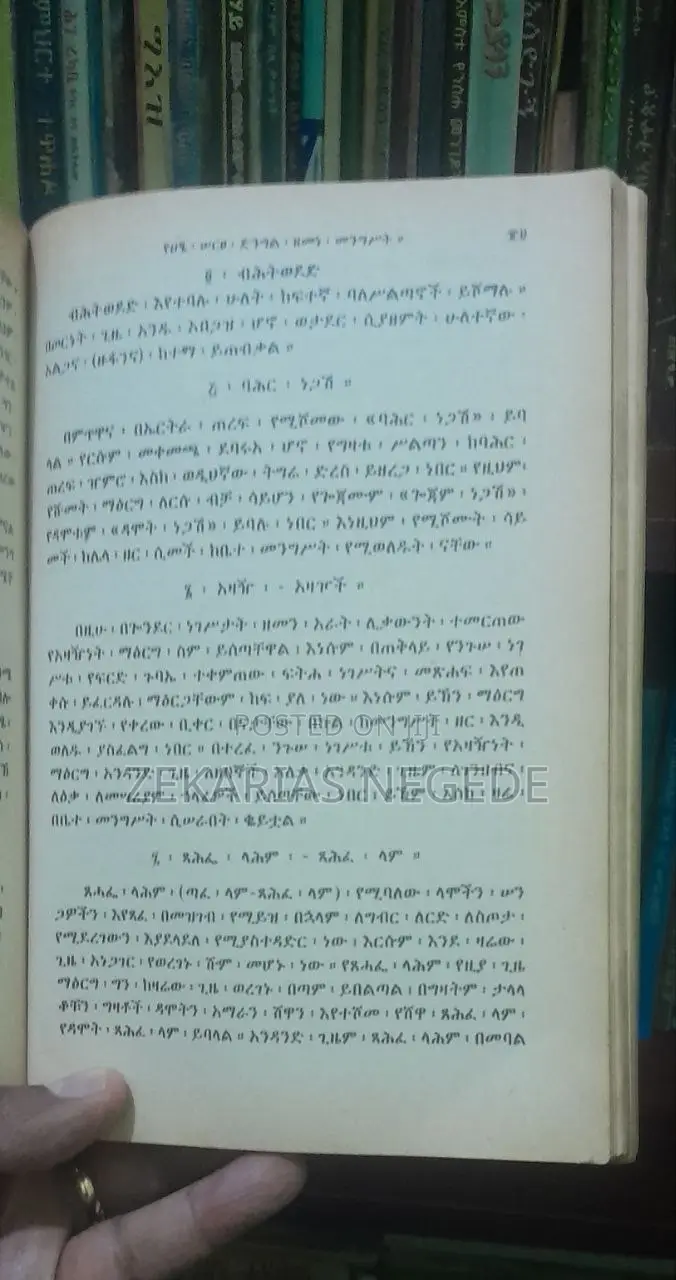 የዐፄ ፡ ሠርፀ ፡ ድንግል ፡ ዘመነ ፡ መንግሥት ።
፩ ፡ ብሕትወደድ
ብሕትወደድ ፡ እየተባሉ ፡ ሁለት ፡ ከፍተኛ ፡ ባለሥልጣኖች ፡ ይሾማሉ ።
በጦርነት ፡ ጊዜ ፡ አንዱ ፡ አበጋዝ ፡ ሆኖ ፡ ወታደር ፡ ሲያዘምት ፡ ሁለተኛው ፡
አልጋና ፡ (ዙፋንና) ፡ ከተማ ፡ ይጠብቃል ።
፪ ፡ ባሕር ፡ ነጋሽ ።
በምጥዋና ፡ በኤርትራ ፡ ጠረፍ ፡ የሚሾመው ፡ «ባሕር ፡ ነጋሽ» ፡ ይባ
ላል ። የርሱም ፡ መቀመጫ ፡ ደባሩአ ፡ ሆኖ ፡ የግዛቱ ፡ ሥልጣን ፡ ከባሕር ፡
ጠረፍ ፡ ዠምሮ ፡ እስከ ፡ ወዲህኛው ፡ ትግሬ ፡ ድረስ ፡ ይዘረጋ ፡ ነበር ። የዚህም ፡
የሹመት ፡ ማዕርግ ፡ ለርሱ ፡ ብቻ ፡ ሳይሆን ፡ የጐጃሙም ፡ «ጐጃም ፡ ነጋሽ» ፡
የዳሞቱም ፡ «ዳሞት ፡ ነጋሽ» ፡ ይባሉ ፡ ነበር ። እነዚህም ፡ የሚሾሙት ፡ ሳይ
መች ፡ ከሌላ ፡ ዘር ፡ ሲመች ፡ ከቤተ ፡ መንግሥት ፡ የሚወለዱት ፡ ናቸው ።
፮ ፡ አዛዥ ፡ - አዛዦች ።
በዚሁ ፡ በጐንደር ፡ ነገሥታት ፡ ዘመን ፡ አራት ፡ ሊቃውንት ፡ ተመርጠው
የአዛዥነት ፡ ማዕርግ ፡ ስም ፡ ይሰጣቸዋል ፡ እነሱም ፡ በጠቅላይ ፡ የንጉሠ ፡ ነገ
ሥቱ ፡ የፍርድ ፡ ጉባኤ ፡ ተቀምጠው ፡ ፍትሐ ፡ ነገሥትና ፡ መጽሐፍ ፡ እየጠ
ቀሱ ፡ ይፈርዳሉ ፡ ማዕርጋቸውም ፡ ከፍ ፡ ያለ ፡ ነው ። እነሱም ፡ ይኸን ፡ ማዕርግ
እንዲያገኙ ፡ የቀረው ፡ ቢቀር ፡ በናታቸው ፡ በኩል ፡ ከመንግሥት ፡ ዘር ፡ እንዲ
ወለዱ ፡ ያስፈልግ ፡ ነበር ። በተረፈ ፡ ንጉሠ ፡ ነገሥቱ ፡ ይኸን ፡ የአዛዥነት ፡
ማዕርግ ፡ አንዳንድ ፡ ጊዜ ፡ አለቃ ፡ አንዳንድ ፡ ጊዜም ፡ ለገንዘብና ፡
ለዕቃ ፡ ነበር ፡ ይኸም ፡ እስከ ፡ ዛሬ ፡
በቤተ ፡ መንግሥት ፡ ሲሠራበት ፡ ቈይቷል ።
፯ ፡ ጸሕፌ ፡ ላሕም ፡ - ጸሕፈ ፡ ላም ።
ጸሓፌ ፡ ላሕም ፡ (ጣፈ ፡ ላም-ጸሕፈ ፡ ላም) ፡ የሚባለው ፡ ላሞችን ፡ ሠን
ጋዎችን ፡ እየጻፈ ፡ በመዝገብ ፡ የሚይዝ ፡ በኋላም ፡ ለግብር ፡ ለርድ ፡ ለስጦታ ፡
የሚደረገውን ፡ እያደላደለ ፡ የሚያስተዳድር ፡ ነው ፡ እርሱም ፡ እንደ ፡ ዛሬው ፡
ጊዜ ፡ አነጋገር ፡ የወረገኑ ፡ ሹም ፡ መሆኑ ፡ ነው ። የጸሓፌ ፡ ላሕም ፡ የዚያ ፡ ጊዜ
ማዕርግ ፡ ግን ፡ ከዛሬው ፡ ጊዜ ፡ ወረገኑ ፡ በጣም ፡ ይበልጣል ፡ በግዛትም ፡ ታላላ
ቆቹን ፡ ግዛቶች ፡ ዳሞትን ፡ አማራን ፡ ሸዋን ፡ እየተሾመ ፡ የሸዋ ፡ ጸሕፈ ፡ ላም ፡
የዳሞት ፡ ጸሕፈ ፡ ላም ፡ ይባላል ። አንዳንድ ፡ ጊዜም ፡ ጸሕፈ ፡ ላሕም ፡ በመባል
POSTED ON JIJI
ZEKARIAS NEGEDE